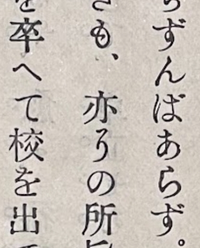 らずんばあらず。
きも、亦りの所
を卒へて校を出